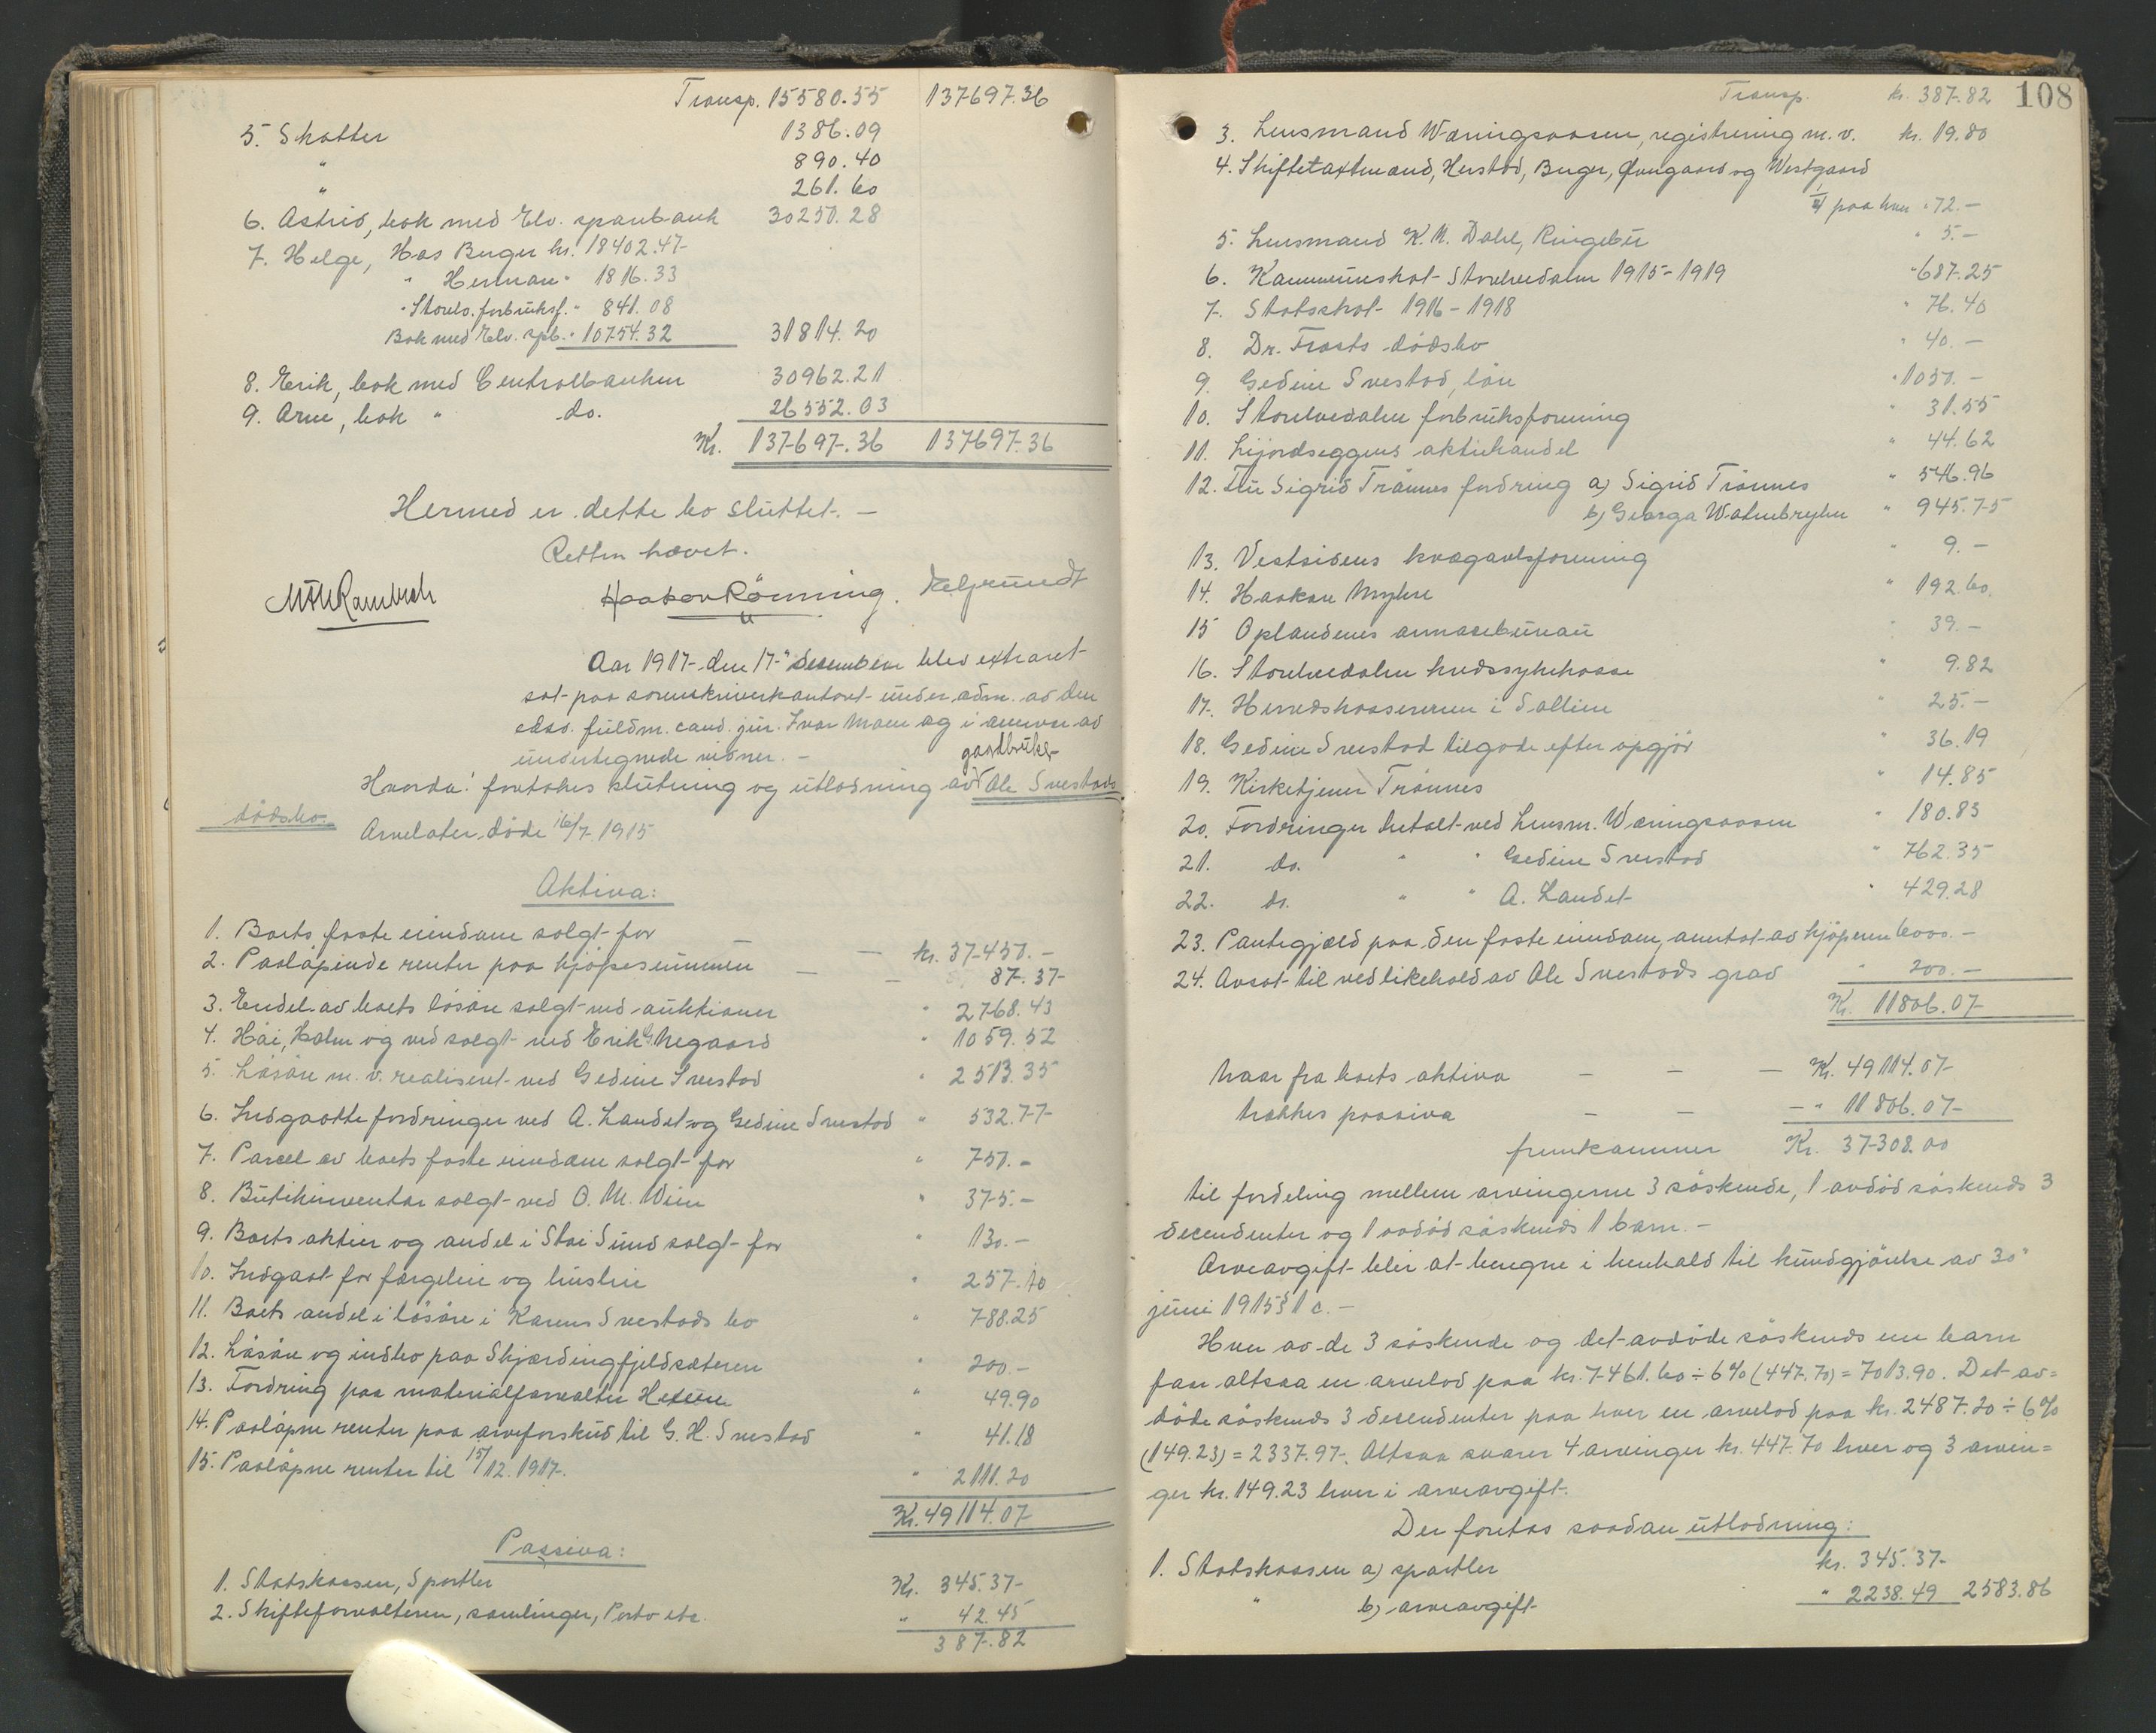 Transp. 15580.55 137697.36
5. Skatter 1386.09
" 890.40
" 261.60
6. Astrid, bok med Elv. sparebank 30250.28
7. Helge, Hos Berger kr. 18402.47
" Herman " 1816.33
" Storelv. forbruksf. " 841.08
Bok med Elv. spb. " 10754.32 31814.20
8. Erik, bok med Centralbanken 30962.21
9. Arne, bok " do. 26552.03
Kr. 137697.36 137697.36
Hermed er dette bo sluttet. —
Retten hævet.
Haakon Rönning.
Aar 1917 den 17de desember blev extraret-
sat paa sorenskriverkontoret under adm. av den
edsv. fuldm. cand. jur. Ivar Moen og i nærvær av
undertegnede vidner. —
gaardbruker
Hvorda! foretokes slutning og utlodning av Ole Snestads
dödsbo.
Arvelater döde 16/7 1915
Aktiva:
1. Boets faste eiendom solgt for — kr. 37450.—
2. Paalöpende renter paa kjöpesummen — — 87.37
3. Endel av boets lösöre solgt ved auktioner " 2768.43
4. Höi, halm og ved solgt ved Erik G. Negaard " 1059.52
5. Lösöre m. v. realiseret ved Gedine Snestad " 2513.35
6. Indgaatte fordringer ved A. Landet og Gedine Snestad " 532.77
7. Parcel av boets faste eiendom solgt for " 750.—
8. Butikinventar solgt ved O. M. Wiin " 375.—
9. Boets aktier og andel i Stai Sund solgt for " 130.—
10. Indgaat for færgeleie og husleie " 257.10
11. Boets andel i lösöre i Karens Snestads bo " 788.25
12. Lösöre og indbo paa Skjærdingfjeldsæteren " 200.—
13. Fordring paa materialforvalter " 49.90
14. Paalöpne renter paa arveforskud til G. H. Snestad " 41.18
15. Paalöpne renter til 15/12.1917. " 2111.20
Kr. 49114.07
Passiva:
1. Statskassen, Sportler Kr. 345.37
2. Skifteforvalteren, samlinger, Porto etc. " 42.45
387.82
Transp. kr. 387.82 108
3. Lensmand Wæringsaasen, registrering m. v. kr. 19.80
4. Skiftetaxtmænd, Herstad, Berger, Övergaard og Westgaard
1/4 paa hver " 72.—
5. Lensmand K. N. Dahl, Ringebu " 5.—
6. Kommuneskat Storelvedalen 1915-1919 " 687.25
7. Statsskat 1916-1918 " 76.40
8. Dr. Frosts dödsbo " 40.—
9. Gedine Snestad, lön " 1050.—
10. Storelvedalen forbruksforening " 31.55
11. Lijordseggens aktiehandel " 44.62
12. Fru Sigrid Trönnes fordring a) Sigrid Trönnes " 546.96
b) Georga Watnebryhn " 945.75
13. Vestsidens kvægavlsforening " 9.—
14. Haakon Myhre " 192.60
15 Oplandenes annocebureau " 39.—
16. Storelvedalen kredssykekasse " 9.82
17. Herredskassereren i Sollien " 25.—
18. Gedine Snestad tilgode efter opgjör " 36.19
19. Kirketjener Trönnes " 14.85
20. Fordringer betalt ved Lensm. Wæringsaasen " 180.83
21. do. " " Gedine Snestad " 762.35
22. do. " " A. Landet " 429.28
23. Pantegjæld paa den faste eiendom, overtat av kjöperen 6000.—
24. Avsat til vedlikehold av Ole Snestads grav " 200.—
Kr. 11806.07
Naar fra boets aktiva — — — Kr. 49114.07
trækkes passiva — — — " 11806.07
fremkommer Kr. 37308.00
til fordeling mellem arvingerne 3 söskende, 1 avdöd söskends 3
decendenter og 1 avdöd söskends 1 barn. —
Arveavgift blir at beregne i henhold til kundgjörelse av 30te
juni 1915 § 1 c. —
Hver av de 3 söskende og det avdöde söskends ene barn
faar altsaa en arvelod paa kr. 7461.60 ÷ 6% (447.70) = 7013.90. Det av=
döde söskends 3 decendenter faar hver en arvelod paa kr. 2487.20 ÷ 6%
(149.23) = 2337.97. Altsaa svarer 4 arvinger kr. 447.70 hver og 3 arvin=
ger kr. 149.23 hver i arveavgift.
Der foretas saadan utlodning:
1. Statskassen a) sportler kr. 345.37
" b) arveavgift " 2238.49 2583.86